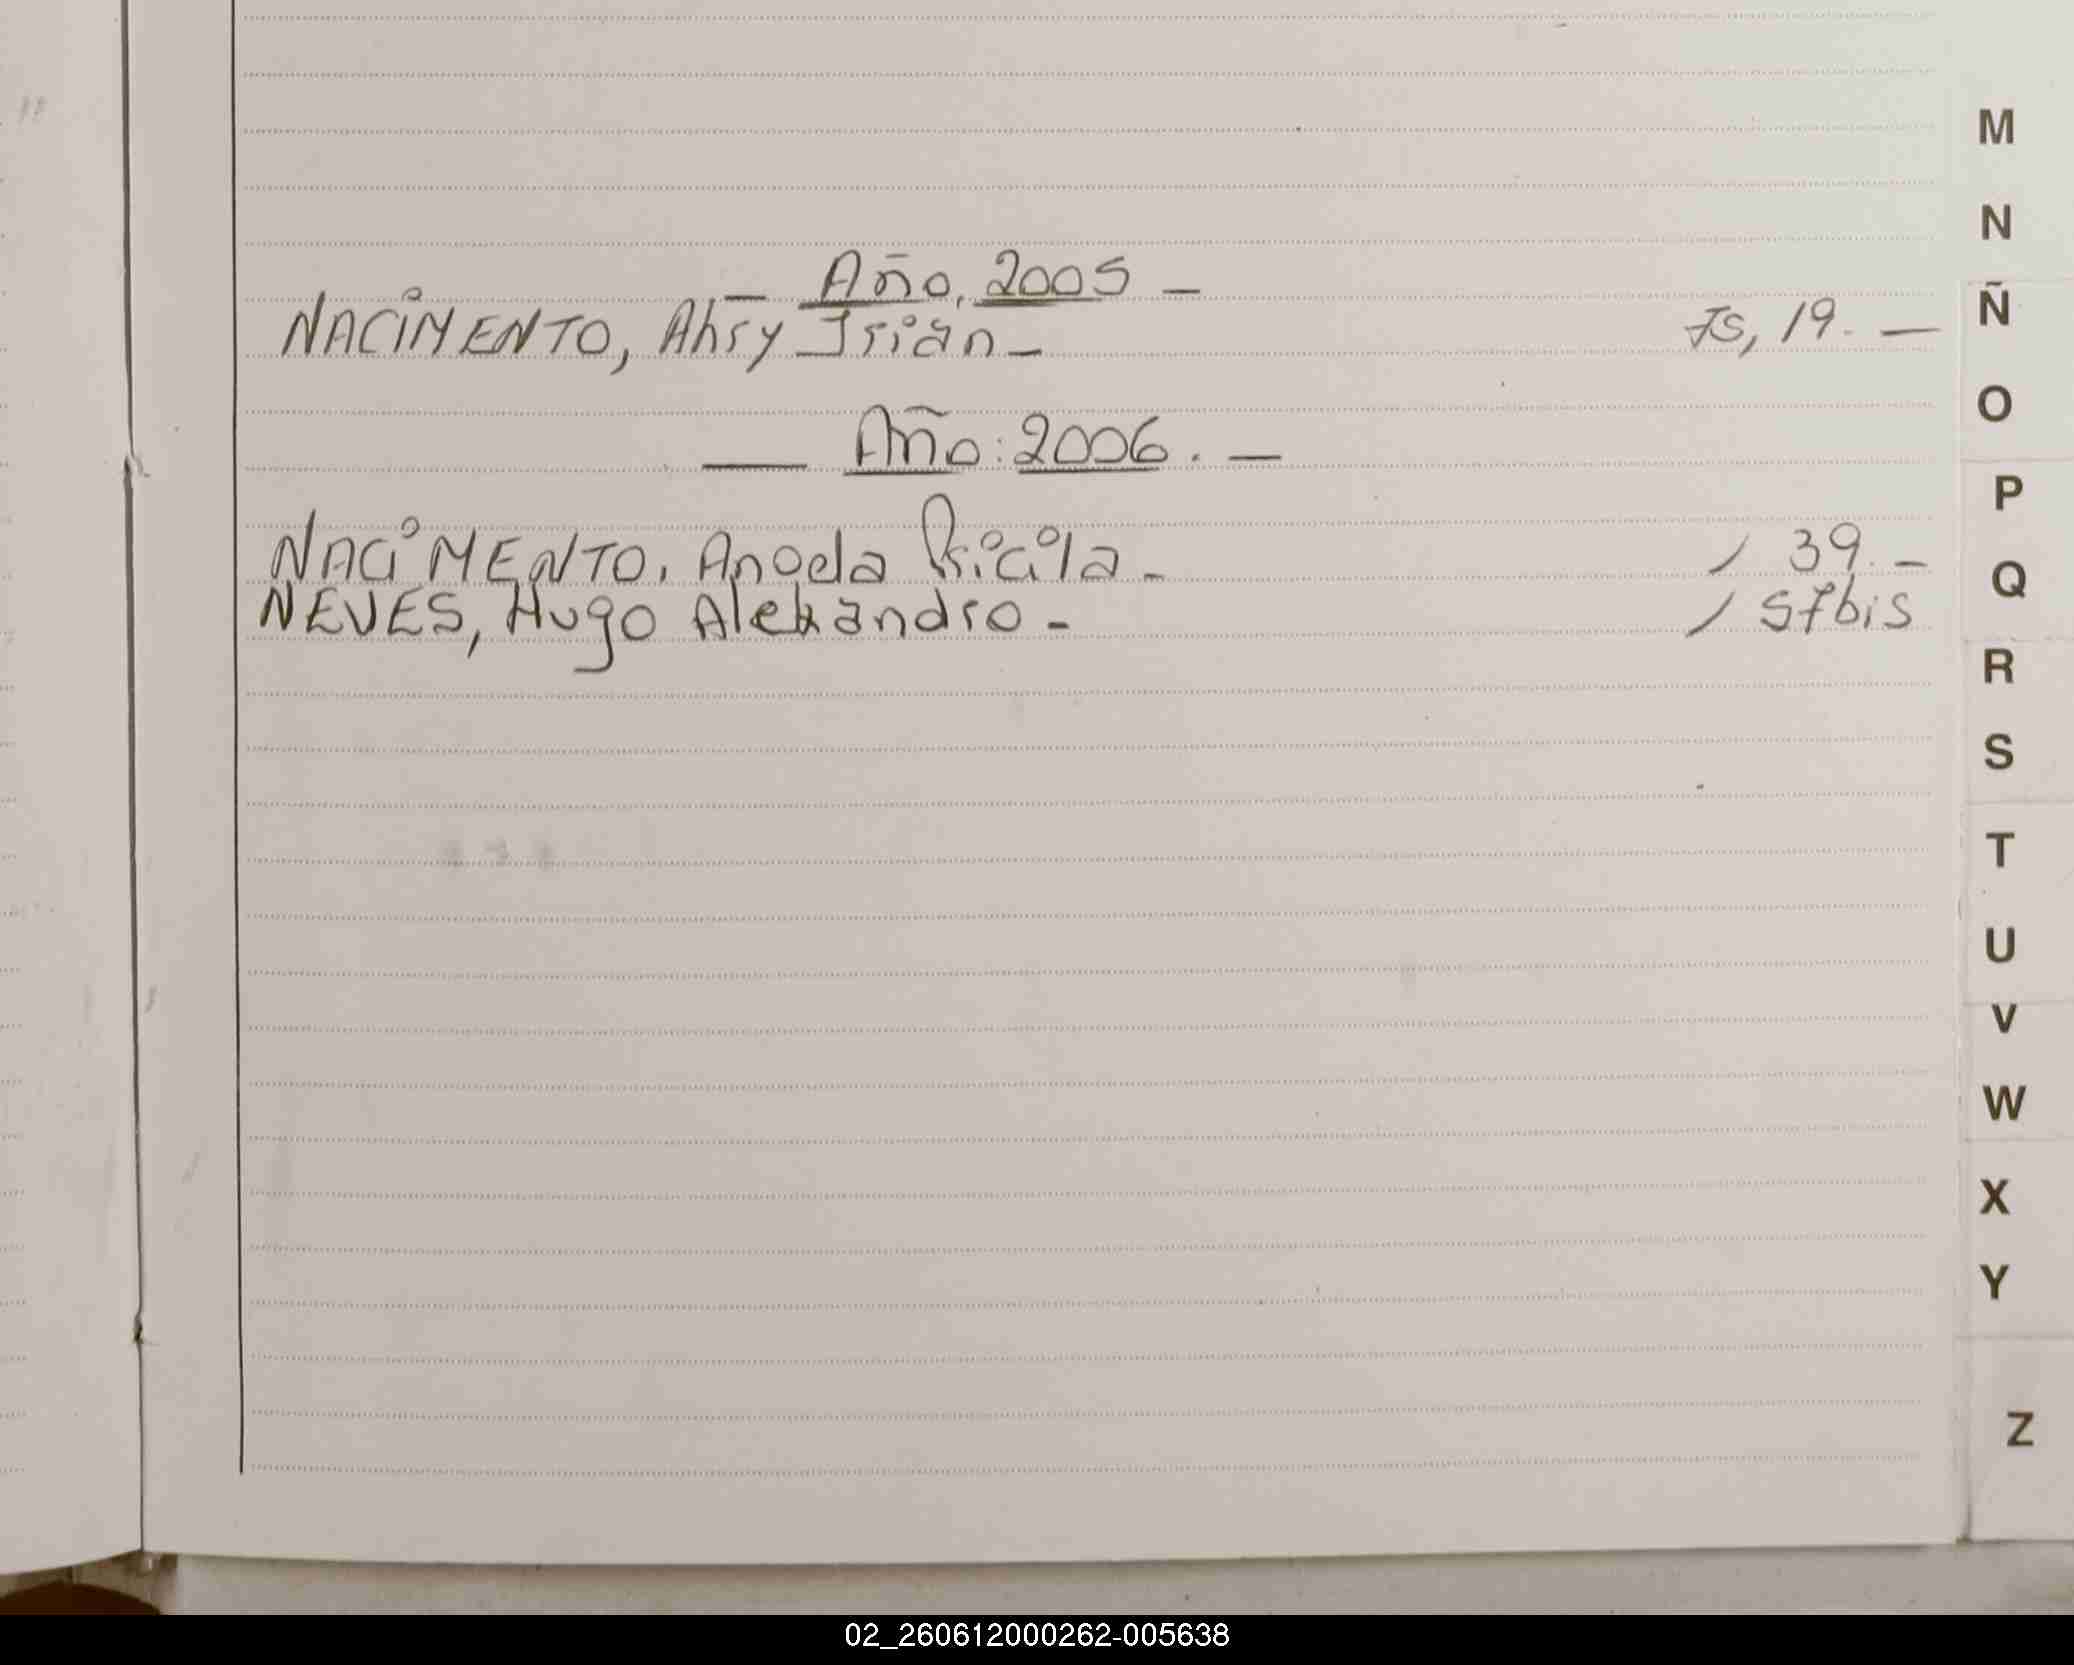 Año, 2005 -
NACIMENTO, Ahry Irian - Fs, 19. -
Año: 2006. -
NACIMENTO, Angela Pricila - / 39. -
NEVES, Hugo Alexandro - / 57bis
M
N
Ñ
O
P
Q
R
S
T
U
V
W
X
Y
Z
02_260612000262-005638